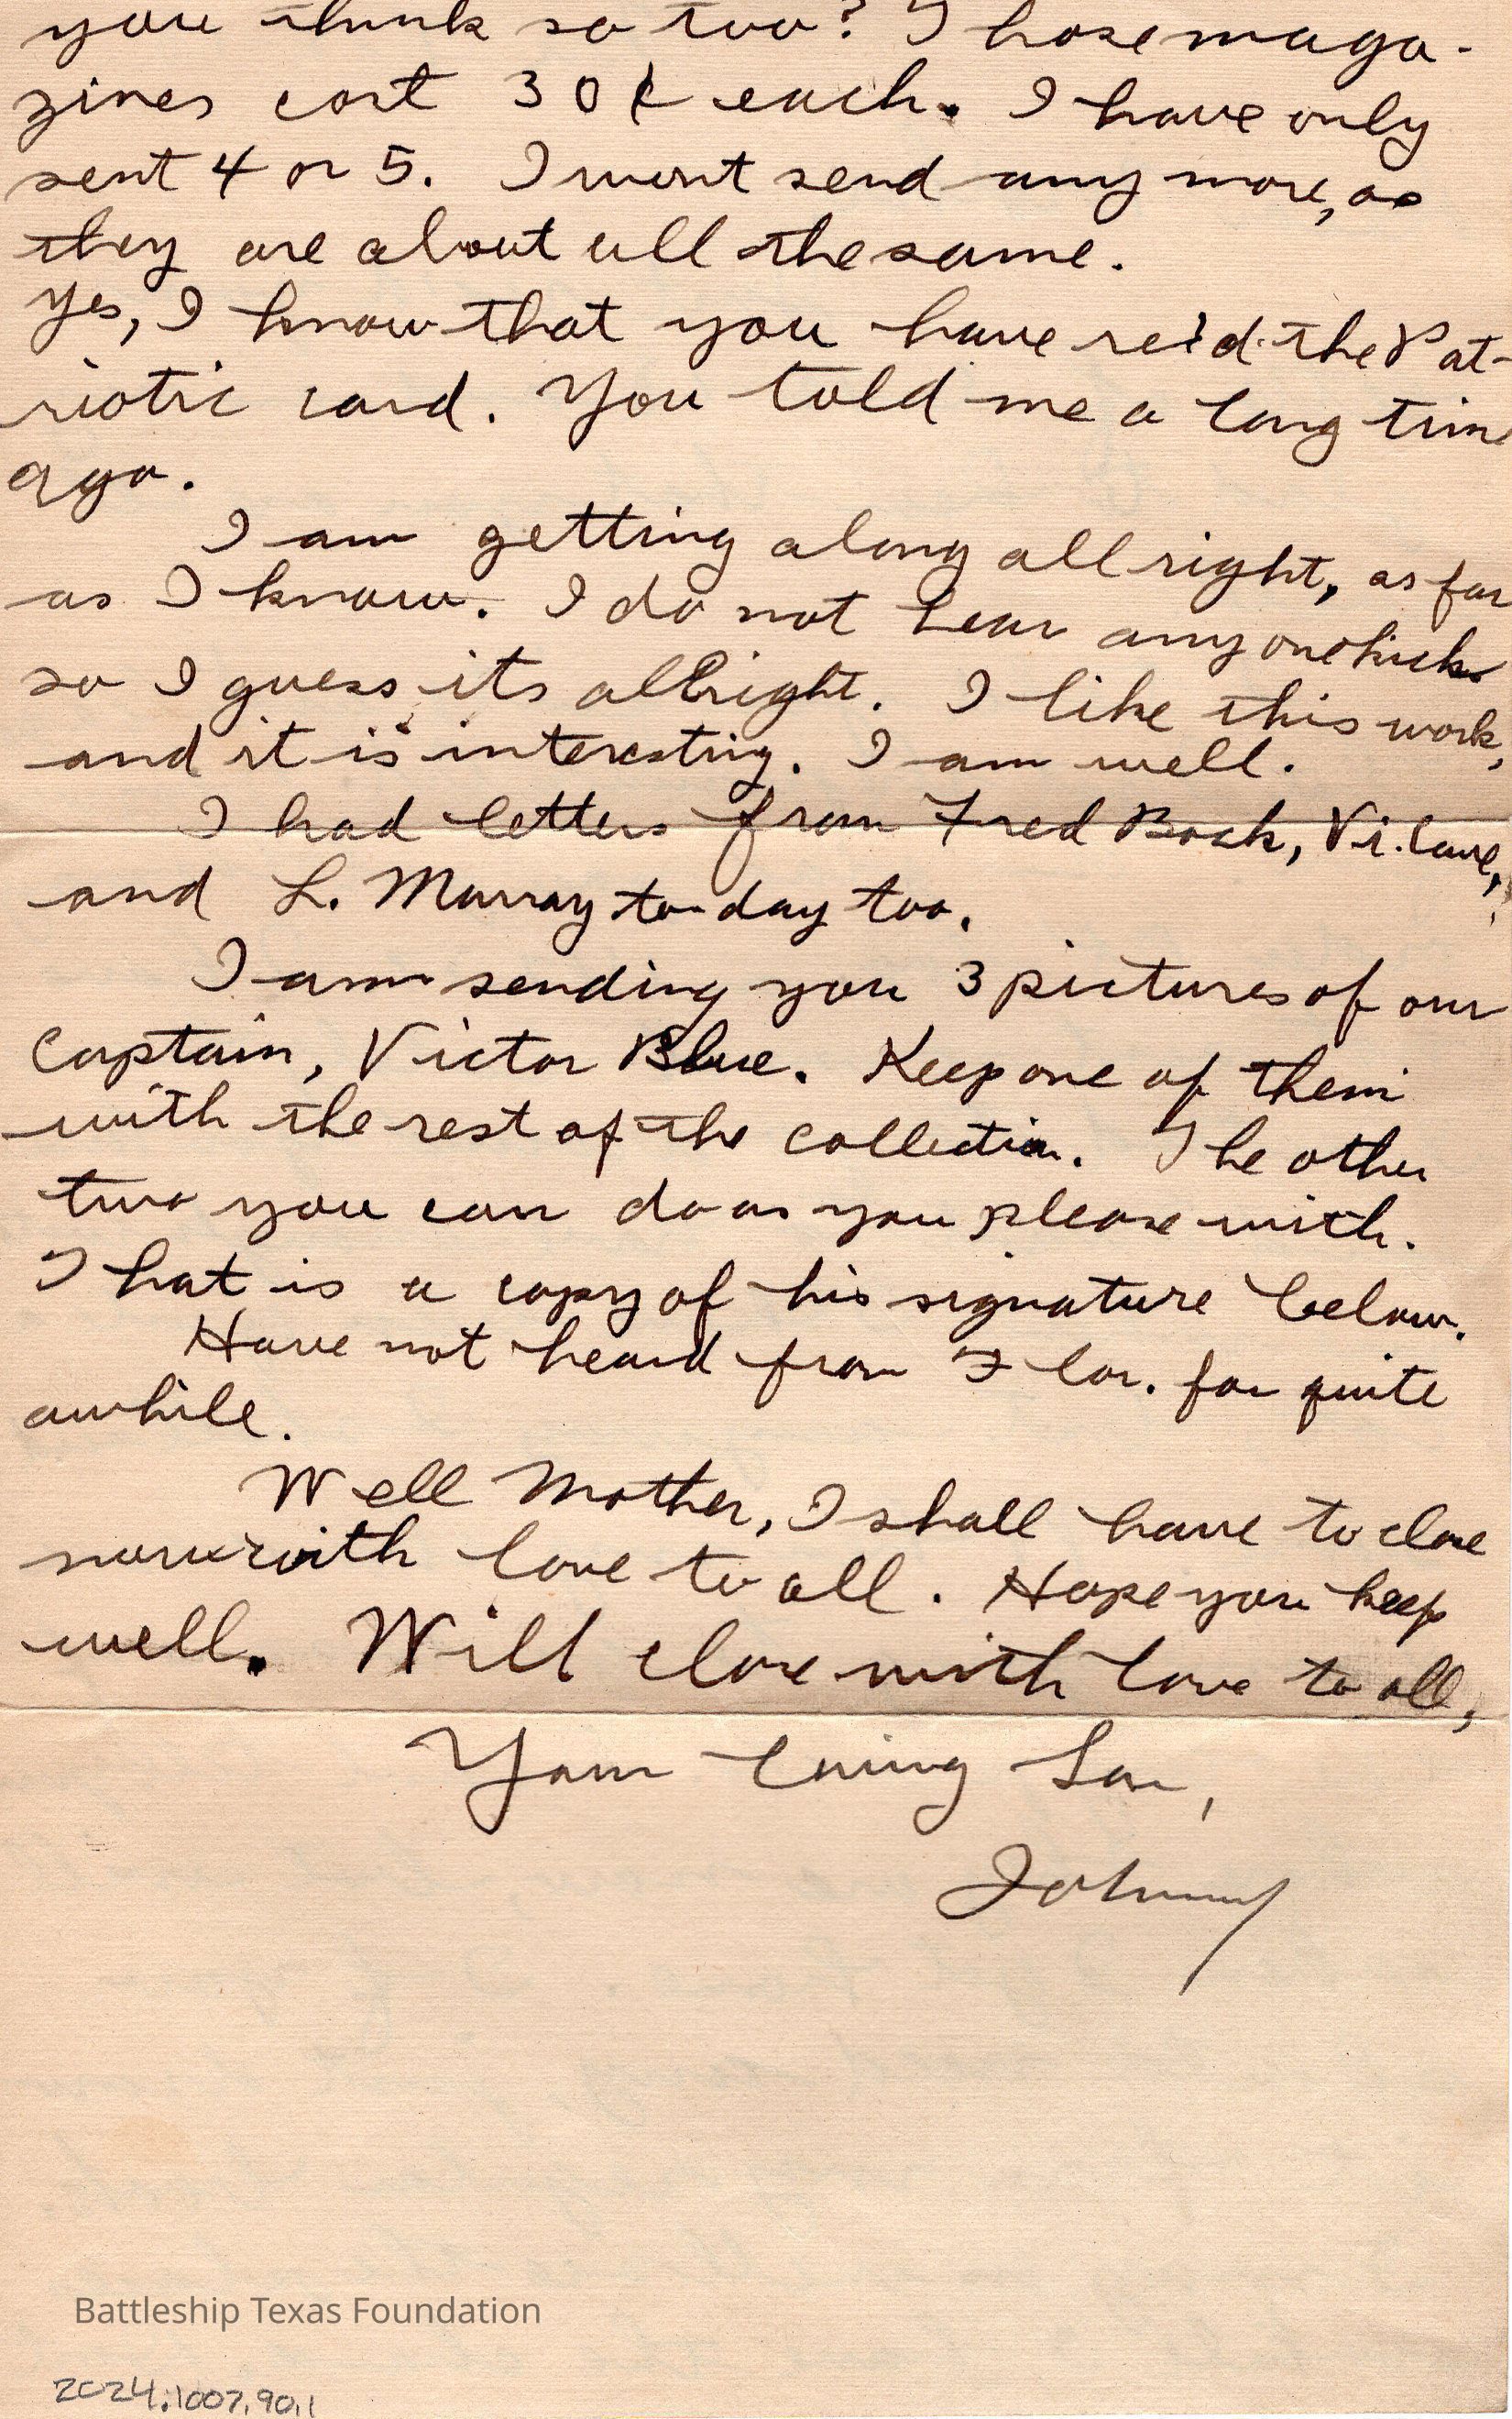 you think so too? Those maga-
zines cost 30¢ each. I have only
sent 4 or 5. I wont send any more, as
they are about all the same.
Yes, I know that you have rec'd the Pat-
riotic card. You told me a long time
ago.
I am getting along all right, as far
as I know. I do not hear any one kick
so I guess its allright. I like this work,
and it is interesting. I am well.
I had letters from Fred Bock, Vi.
and L. Murray to-day too.
I am sending you 3 pictures of our
Captain, Victor Blue. Keep one of them
with the rest of the collection. The other
two you can do as you please with.
That is a copy of his signature below.
Have not heard from Flor. for quite
awhile.
Well Mother, I shall have to close
now with love to all. Hope you keep
well. Will close with love to all,
Your loving Son,
Johnny
Battleship Texas Foundation
2024.1007.90.1